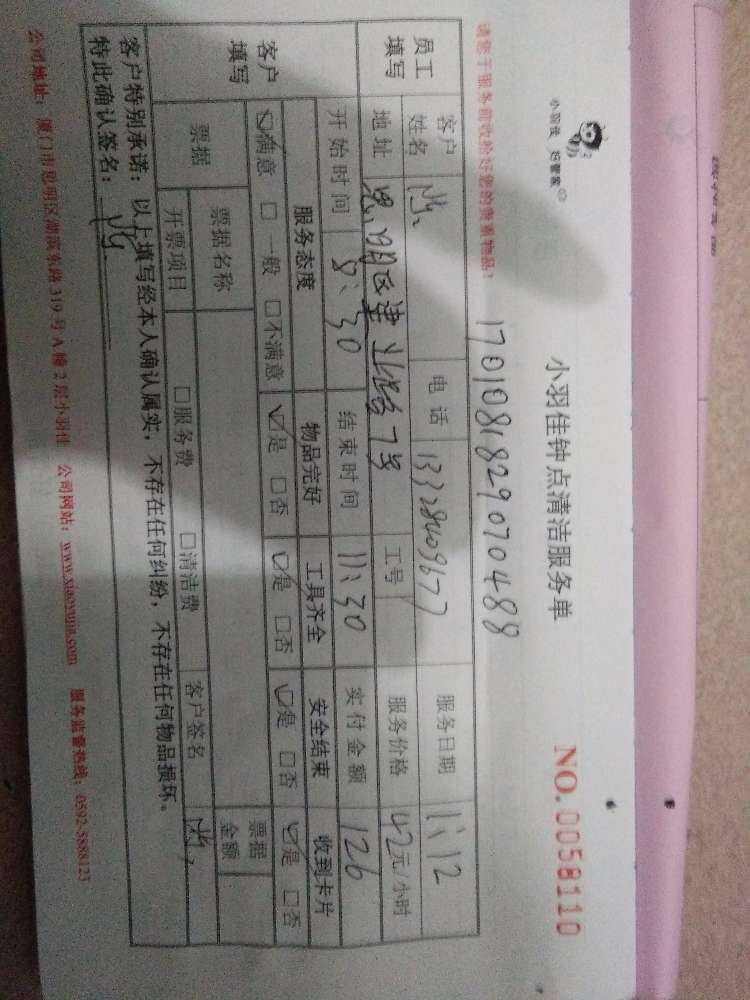 小羽佳 好管家
小羽佳钟点清洁服务单
NO.0058110
请您于服务前收拾好您的贵重物品!
1701081829070488
员工填写
客户姓名 电话 13328409677 服务日期 11、12
地址 思明区建业路7号 工号 服务价格 42元/小时
开始时间 8:30 结束时间 11:30 实付金额 126
客户填写
服务态度 物品完好 工具齐全 安全结束 收到卡片
☑满意 □一般 □不满意 ☑是 □否 ☑是 □否 ☑是 □否 ☑是 □否
票据 票据名称 票据金额
开票项目 □服务费 □清洁费 客户签名
客户特别承诺:以上填写经本人确认属实,不存在任何纠纷,不存在任何物品损坏。
特此确认签名:
公司地址:厦门市思明区湖滨东路319号A幢2层小羽佳 公司网站:www.xiaoyujia.com 服务监督热线:0592-5888123